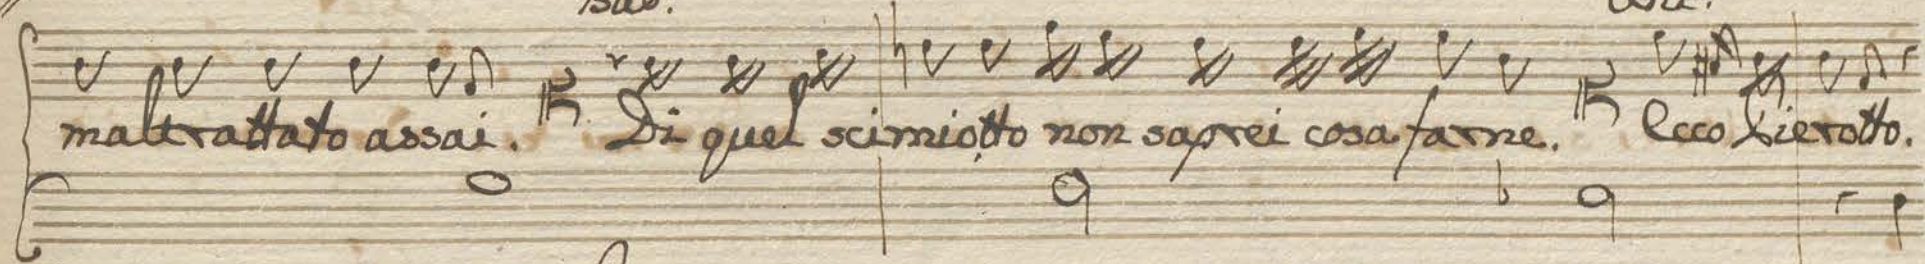 maltrattato assai. Di quel scimiotto non saprei cosa farne. Ecco Pierotto.